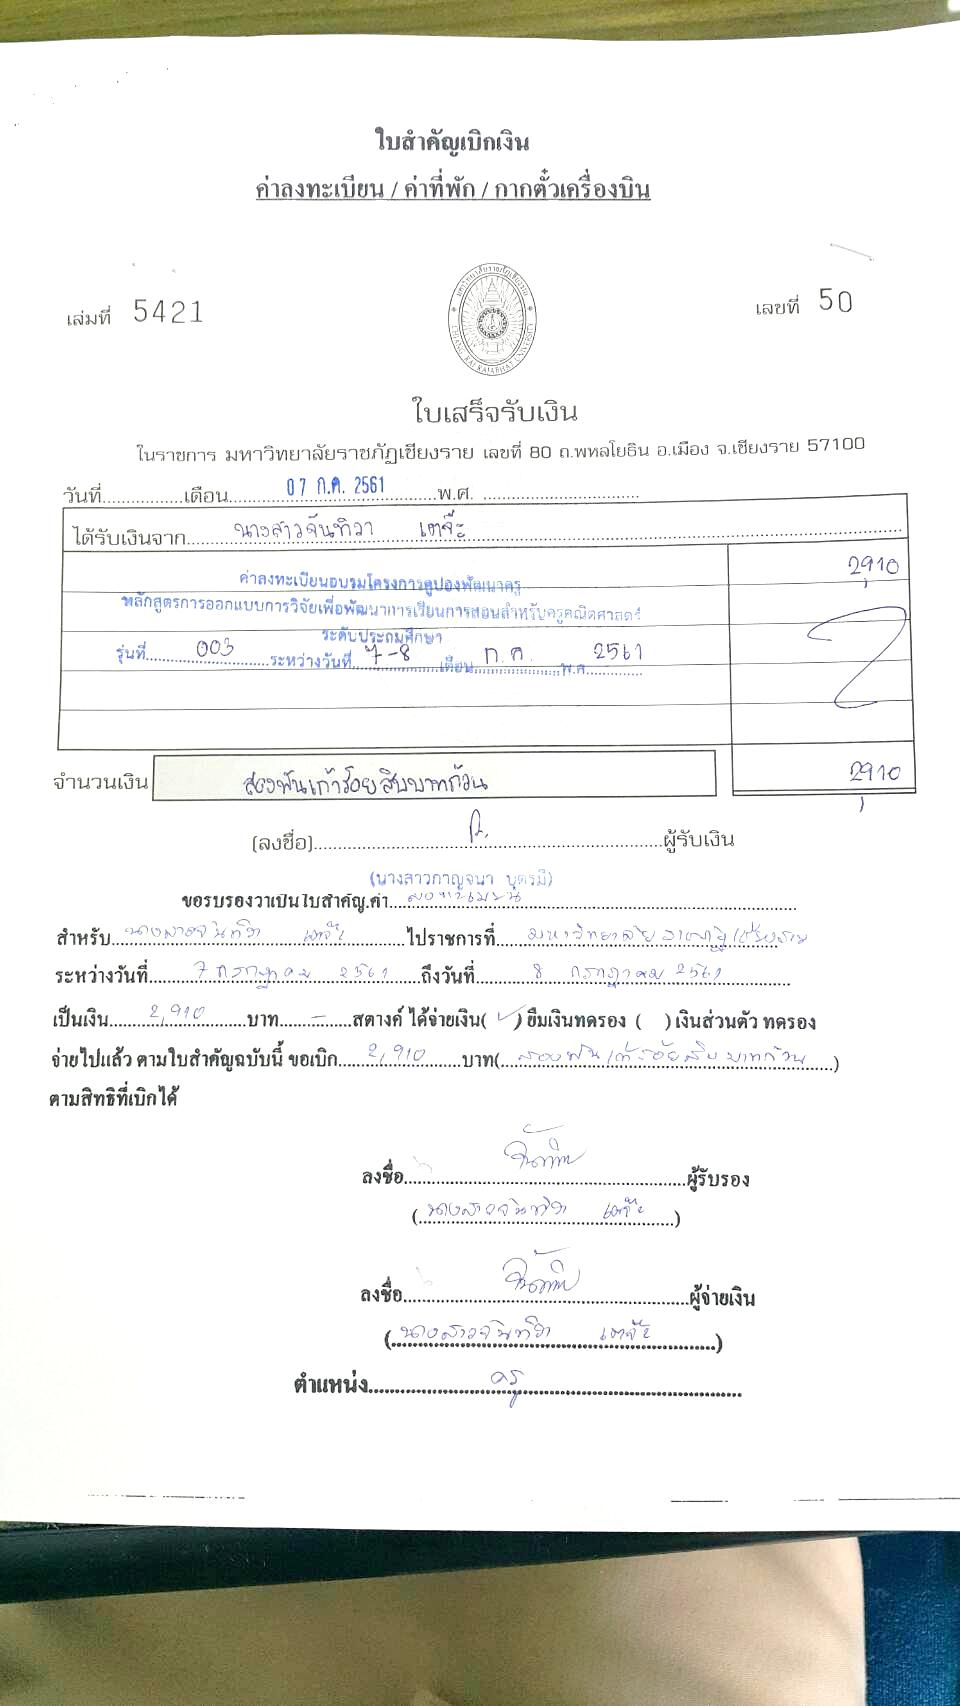 ใบสำคัญเบิกเงิน
ค่าลงทะเบียน / ค่าที่พัก / กากตั๋วเครื่องบิน
เล่มที่ 5421 เลขที่ 50
มหาวิทยาลัยราชภัฏเชียงราย
CHIANG RAI RAJABHAT UNIVERSITY
ใบเสร็จรับเงิน
ในราชการ มหาวิทยาลัยราชภัฏเชียงราย เลขที่ 80 ถ.พหลโยธิน อ.เมือง จ.เชียงราย 57100
วันที่................เดือน........07 ก.ค. 2561........พ.ศ. ................
ได้รับเงินจาก......นางสาวจันทิวา เตจ๊ะ......
ค่าลงทะเบียนอบรมโครงการคูปองพัฒนาครู 2,910
หลักสูตรการออกแบบการวิจัยเพื่อพัฒนาการเรียนการสอนสำหรับครูคณิตศาสตร์
ระดับประถมศึกษา
รุ่นที่......003......ระหว่างวันที่...7-8...เดือน...ก.ค....พ.ศ...2561
จำนวนเงิน สองพันเก้าร้อยสิบบาทถ้วน 2,910
(ลงชื่อ)................ผู้รับเงิน
(นางสาวกาญจนา บุตรมี)
ขอรับรองว่าเป็นใบสำคัญ.ค่า...ลงทะเบียน
สำหรับ...นางสาวจันทิวา เตจ๊ะ...ไปราชการที่...มหาวิทยาลัยราชภัฏเชียงราย
ระหว่างวันที่...7 กรกฎาคม 2561...ถึงวันที่...8 กรกฎาคม 2561
เป็นเงิน...2,910...บาท...-...สตางค์ ได้จ่ายเงิน(✓) ยืมเงินทดรอง ( ) เงินส่วนตัว ทดรอง
จ่ายไปแล้ว ตามใบสำคัญฉบับนี้ ขอเบิก...2,910...บาท(...สองพันเก้าร้อยสิบบาทถ้วน...)
ตามสิทธิที่เบิกได้
ลงชื่อ................ผู้รับรอง
(...นางสาวจันทิวา เตจ๊ะ...)
ลงชื่อ................ผู้จ่ายเงิน
(...นางสาวจันทิวา เตจ๊ะ...)
ตำแหน่ง......ครู......